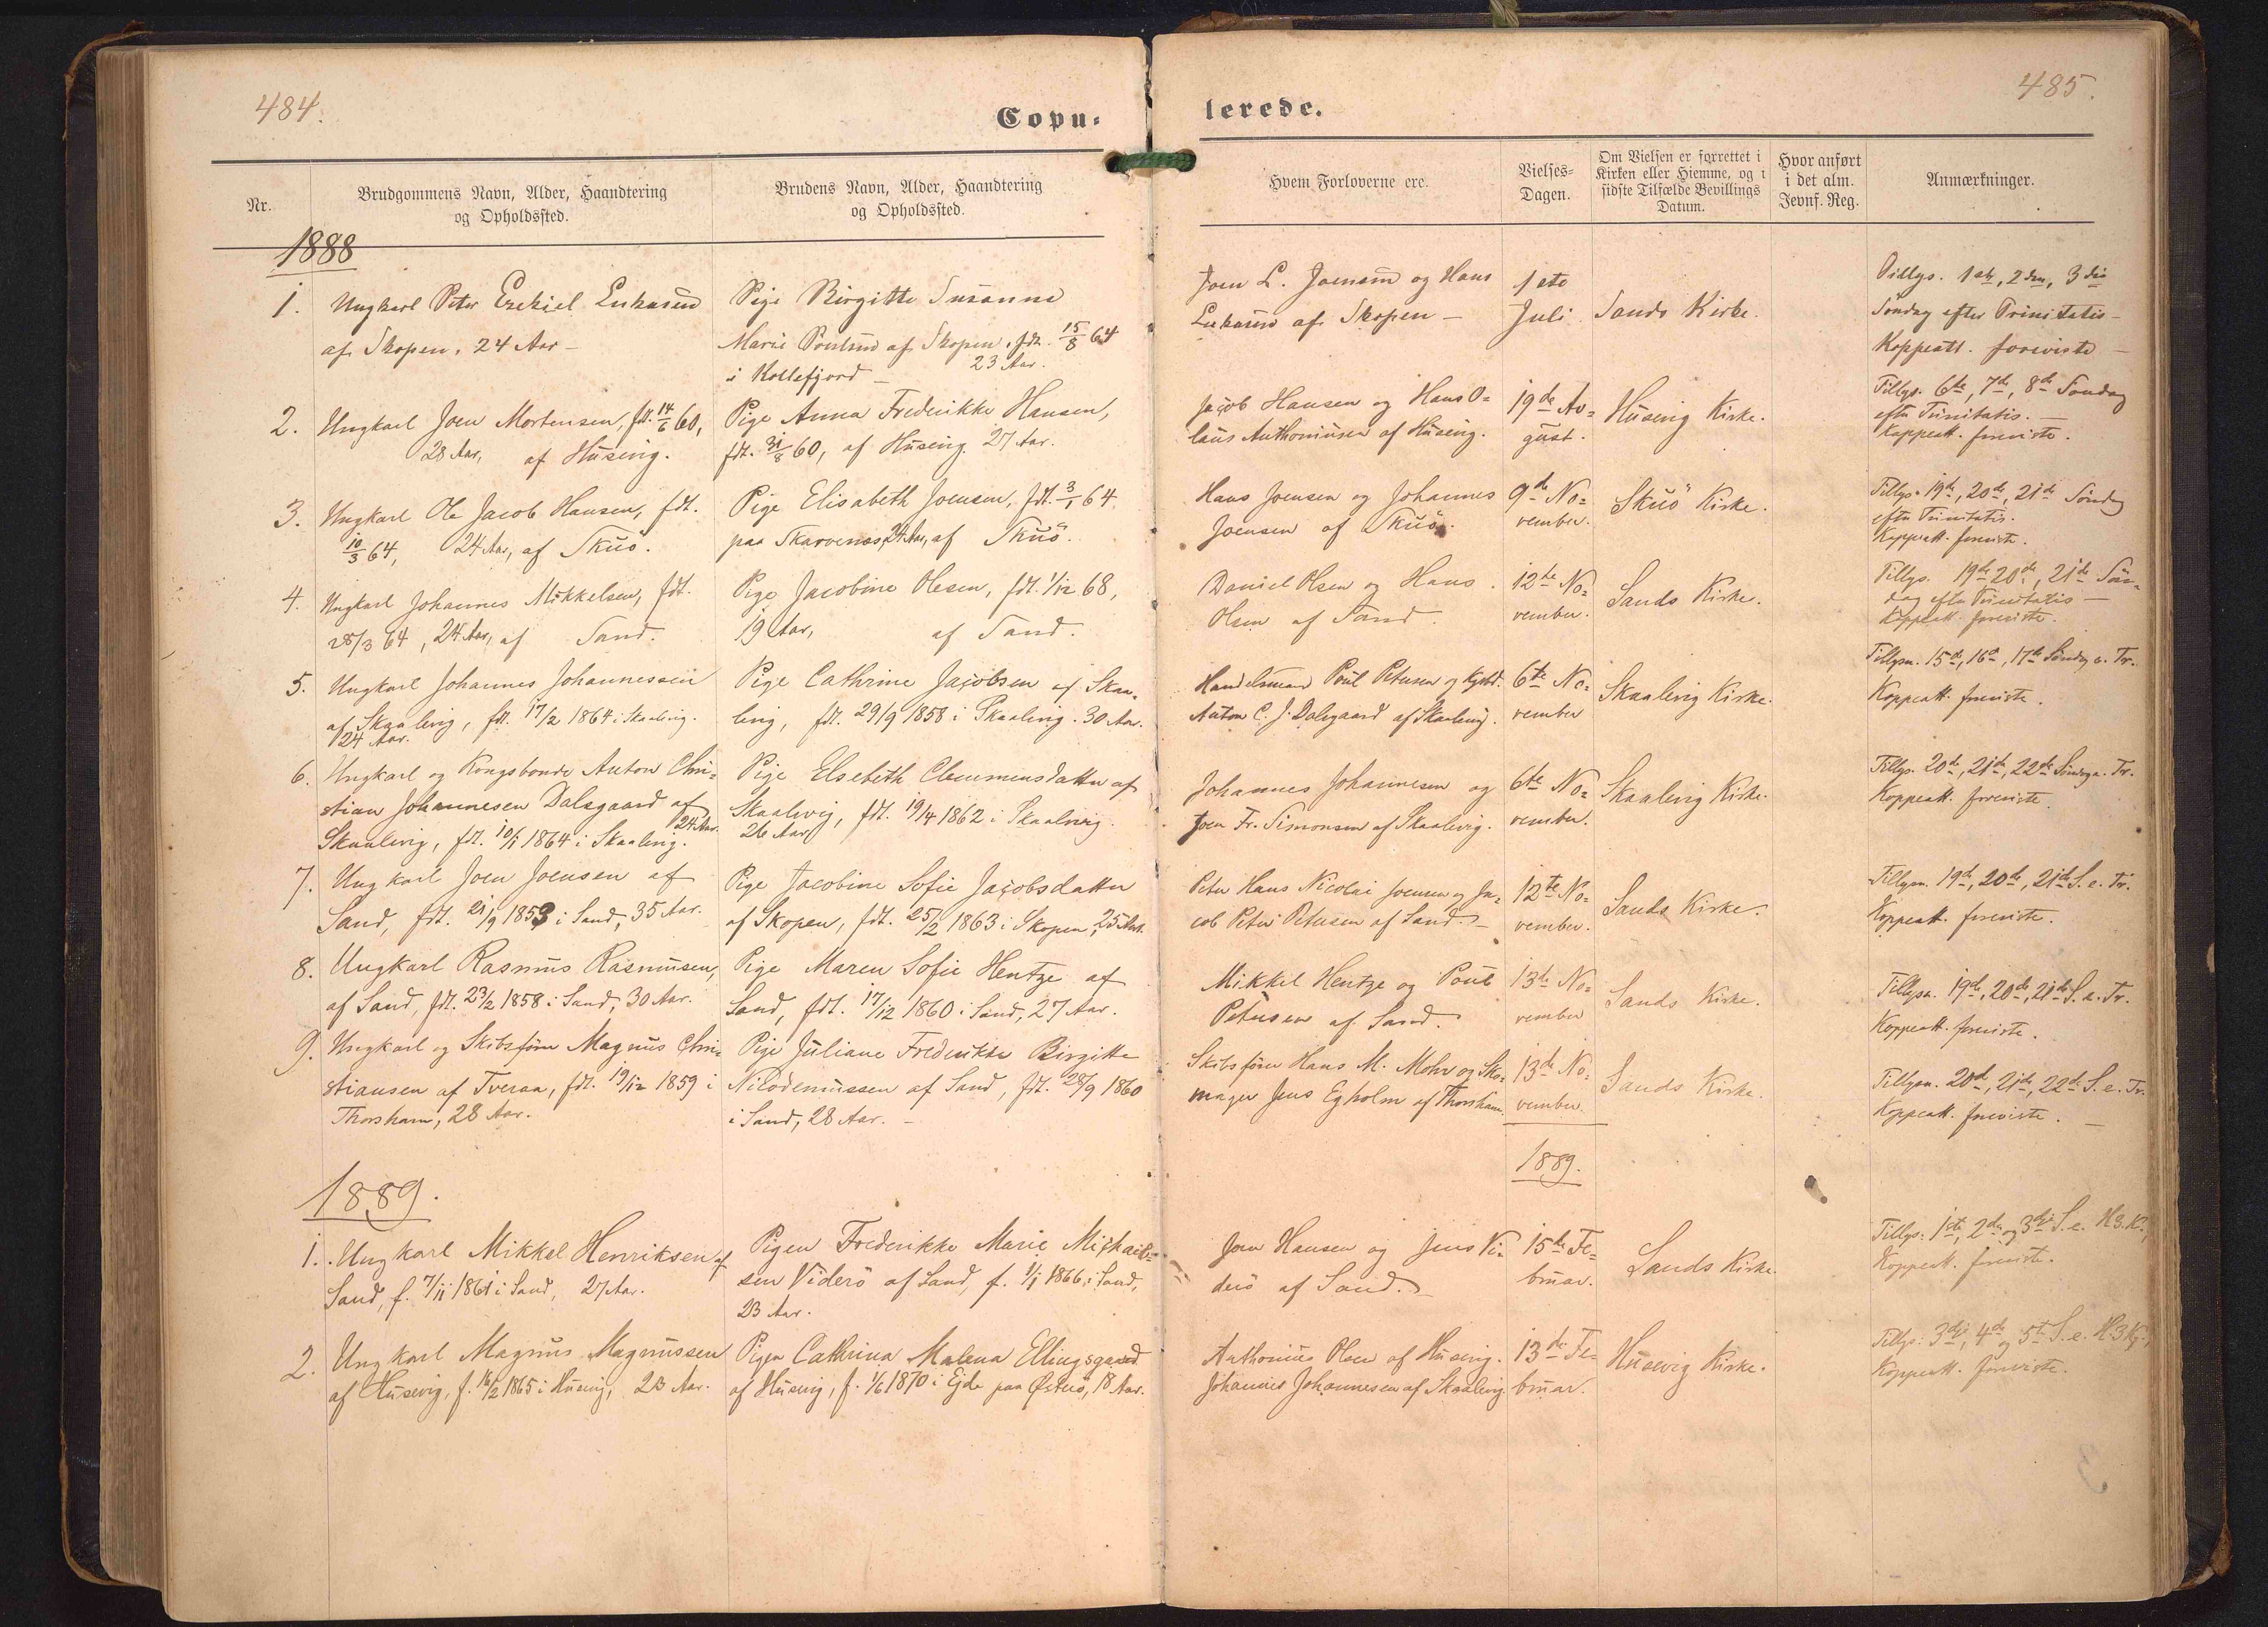 484.
Copu-
Nr.
Brudgommens Navn, Alder, Haandtering
og Opholdssted.
Brudens Navn, Alder, Haandtering
og Opholdssted.
1888
1. Ungkarl Peter Ezekiel Lukassen
af Skopen, 24 Aar –
Pige Birgitte Susanne
Marie Poulsen af Skopen, fdt. 15/8 64
i Kollefjord – 23 Aar.
2. Ungkarl Joen Mortensen, fdt. 14/6 60,
28 Aar, af Husevig.
Pige Anna Frederikke Hansen,
fdt. 31/8 60, af Husevig. 27 Aar.
3. Ungkarl Ole Jacob Hansen, fdt.
10/3 64, 24 Aar, af Skuö.
Pige Elisabeth Joensen, fdt. 3/1 64
paa Skarvenæs, 24 Aar, af Skuö.
4. Ungkarl Johannes Mikkelsen, fdt.
28/3 64, 24 Aar, af Sand.
Pige Jacobine Olesen, fdt. 1/12 68,
19 Aar, af Sand.
5. Ungkarl Johannes Johannessen
af Skaalevig, fdt. 17/2 1864 i Skaalevig.
24 Aar.
Pige Cathrine Jacobsen af Skaa-
levig, fdt. 29/9 1858 i Skaalevig. 30 Aar.
6. Ungkarl og Kongsbonde Anton Chri=
stian Johannesen Dalsgaard af
24 Aar.
Skaalevig, fdt. 10/1 1864 i Skaalevig.
Pige Elsebeth Clemmensdatter af
Skaalevig, fdt. 19/4 1862 i Skaalevig
26 Aar
7. Ungkarl Joen Joensen af
Sand, fdt. 21/9 1853 i Sand, 35 Aar.
Pige Jacobine Sofie Jacobsdatter
af Skopen, fdt. 25/2 1863 i Skopen, 25 Aar.
8. Ungkarl Rasmus Rasmusen,
af Sand, fdt. 23/2 1858 i Sand, 30 Aar.
Pige Maren Sofie Hentze af
Sand, fdt. 17/12 1860 i Sand, 27 Aar.
9. Ungkarl og Skibsförer Magnus Chri=
stiansen af Tveraa, fdt. 19/12 1859 i
Thorshavn, 28 Aar.
Pige Juliane Frederikke Birgitte
Nicodemussen af Sand, fdt. 28/9 1860
i Sand, 28 Aar. –
1889.
1. Ungkarl Mikkel Henriksen af
Sand, f. 7/11 1861 i Sand, 27 Aar.
Pigen Frederikke Marie Michael=
sen Viderö af Sand, f. 1/1 1866 i Sand,
23 Aar.
2. Ungkarl Magnus Magnussen
af Husevig, f. 16/2 1865 i Husevig, 23 Aar.
Pigen Cathrina Malena Ellingsgaard
af Husevig, f. 1/6 1870 i Ejde paa Østerö, 18 Aar.
485.
lerede.
Hvem Forloverne ere.
Vielses-
Dagen.
Om Vielsen er forrettet i
Kirken eller Hjemme, og i
sidste Tilfælde Bevillings
Datum.
Hvor anført
i det alm.
Jevnf. Reg.
Anmærkninger.
Joen L. Joensen og Hans
Lukassen af Skopen –
1ste
Juli
Sands Kirke.
Tillys. 1ste, 2den, 3die
Söndag efter Trinitatis –
Koppeatt. foreviste –
Jacob Hansen og Hans O=
laus Anthoniusen af Husevig.
19de Au=
gust.
Husevig Kirke.
Tillys. 6te, 7de, 8de Søndag
efter Trinitatis. –
Koppeatt. foreviste.
Hans Joensen og Johannes
Joensen af Skuö.
9de No=
vember.
Skuö Kirke.
Tillys. 19de, 20de, 21de Söndag
efter Trinitatis.
Koppeatt. foreviste.
Daniel Olsen og Hans
Olsen af Sand.
12te No=
vember.
Sands Kirke.
Tillys. 19de, 20de, 21de Sön-
dag efter Trinitatis –
Koppeatt. foreviste.
Handelsmand Poul Petersen og Kgsbd.
Anton C. J. Dalsgaard af Skaalevig.
6te No=
vember
Skaalevig Kirke.
Tillysn. 15de, 16de, 17de Söndag e. Tr.
Koppeatt. foreviste.
Johannes Johannesen og
Joen Fr. Simonsen af Skaalevig.
6te No=
vember.
Skaalevig Kirke.
Tillys. 20de, 21de, 22de Söndag e. Tr.
Koppeatt. foreviste.
Peter Hans Nicolai Joensen og Ja=
cob Peter Petersen af Sand. –
12te No=
vember.
Sands Kirke.
Tillysn. 19de, 20de, 21de S. e. Tr.
Koppeatt. foreviste.
Mikkel Hentze og Poul
Petersen af Sand.
13de No=
vember
Sands Kirke.
Tillysn. 19de, 20de, 21de S. e. Tr.
Koppeatt. foreviste.
Skibsförer Hans M. Mohr og Sko=
mager Jens Egholm af Thorshavn.
13de No=
vember.
Sands Kirke.
Tillysn. 20de, 21de, 22de S. e. Tr.
Koppeatt. foreviste. –
1889.
Joen Hansen og Jens Vi=
derö af Sand. –
15de Fe=
bruar.
Sands Kirke.
Tillys: 1ste, 2den og 3die S. e. H.3.K.,
Koppeatt. foreviste.
Anthonius Olsen af Husevig.
Johannes Johannesen af Skaalevig
13de Fe=
bruar.
Husevig Kirke.
Tillys: 3die, 4de og 5te S. e. H.3.K.,
Koppeatt. foreviste.